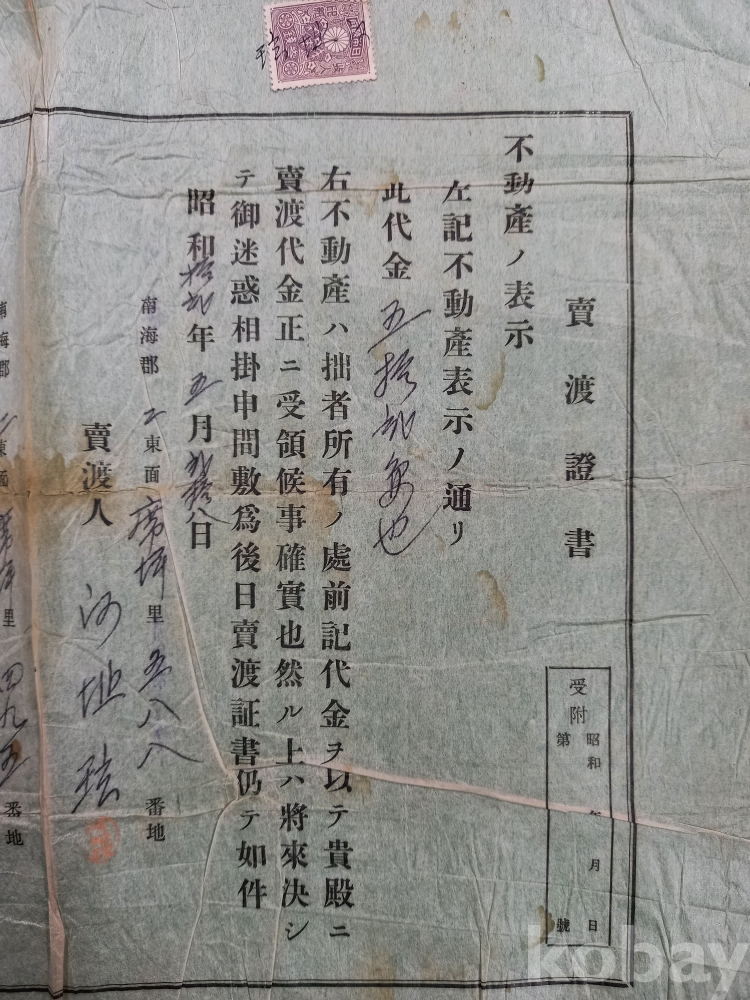 賣渡證書
受附 昭和 年 月 日
第 號
不動產ノ表示
左記不動產表示ノ通リ
此代金 五拾圓也
右不動產ハ拙者所有ノ處前記代金ヲ以テ貴殿ニ
賣渡代金正ニ受領候事確實也然ル上ハ將來決シ
テ御迷惑相掛申間敷爲後日賣渡証書仍テ如件
昭和拾弐年五月弐拾八日
南海郡二東面席坪里五八八番地
賣渡人
南海郡二東面席坪里四九五番地
kobay